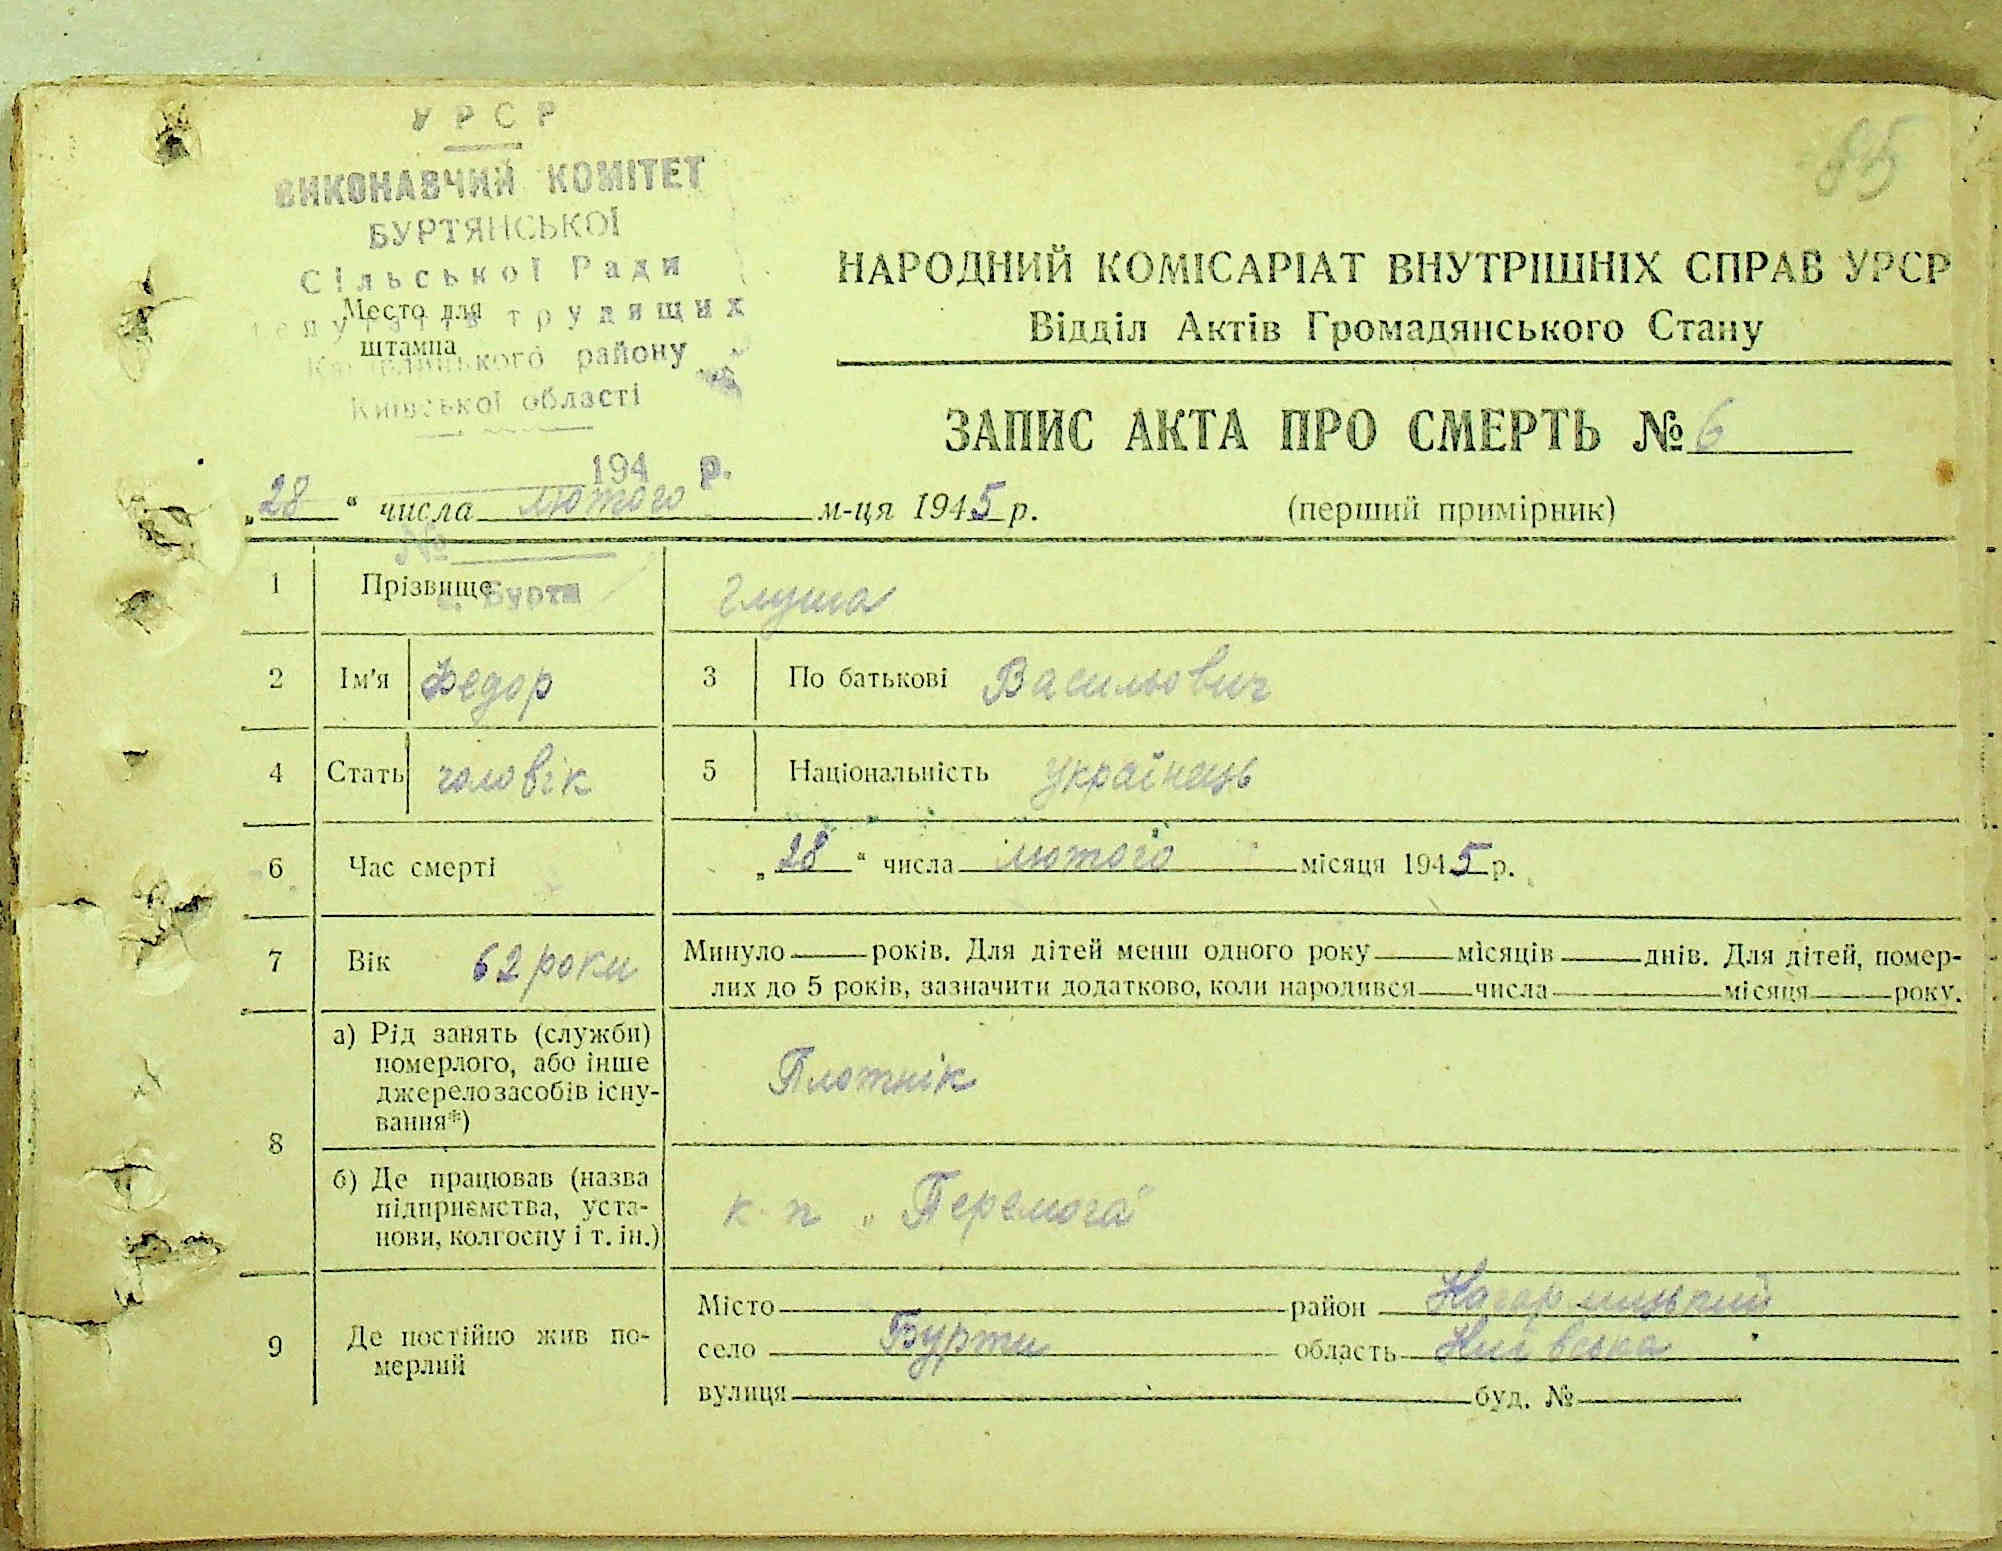 85
УРСР
ВИКОНАВЧИЙ КОМІТЕТ
БУРТЯНСЬКОЇ
Сільської Ради
трудящих
району
Київської області
194 р.
№
с. Бурти
Место для
штампа
НАРОДНИЙ КОМІСАРІАТ ВНУТРІШНІХ СПРАВ УРСР
Відділ Актів Громадянського Стану
ЗАПИС АКТА ПРО СМЕРТЬ № 6
„28“ числа лютого м-ця 1945 р. (перший примірник)
1 Прізвище Глуша
2 Ім'я Федор 3 По батькові Васильович
4 Стать чоловік 5 Національність українець
6 Час смерті „28“ числа лютого місяця 1945 р.
7 Вік 62 роки Минуло років. Для дітей менш одного року місяців днів. Для дітей, помер-
лих до 5 років, зазначити додатково, коли народився числа місяця року.
8 а) Рід занять (служби)
померлого, або інше
джерело засобів існу-
вання*)
Плотнік
б) Де працював (назва
підприємства, уста-
нови, колгоспу і т. ін.)
к-п „Перемога"
9 Де постійно жив по-
мерлий
Місто район Кагарлицький
село Бурти область Київська
вулиця буд. №